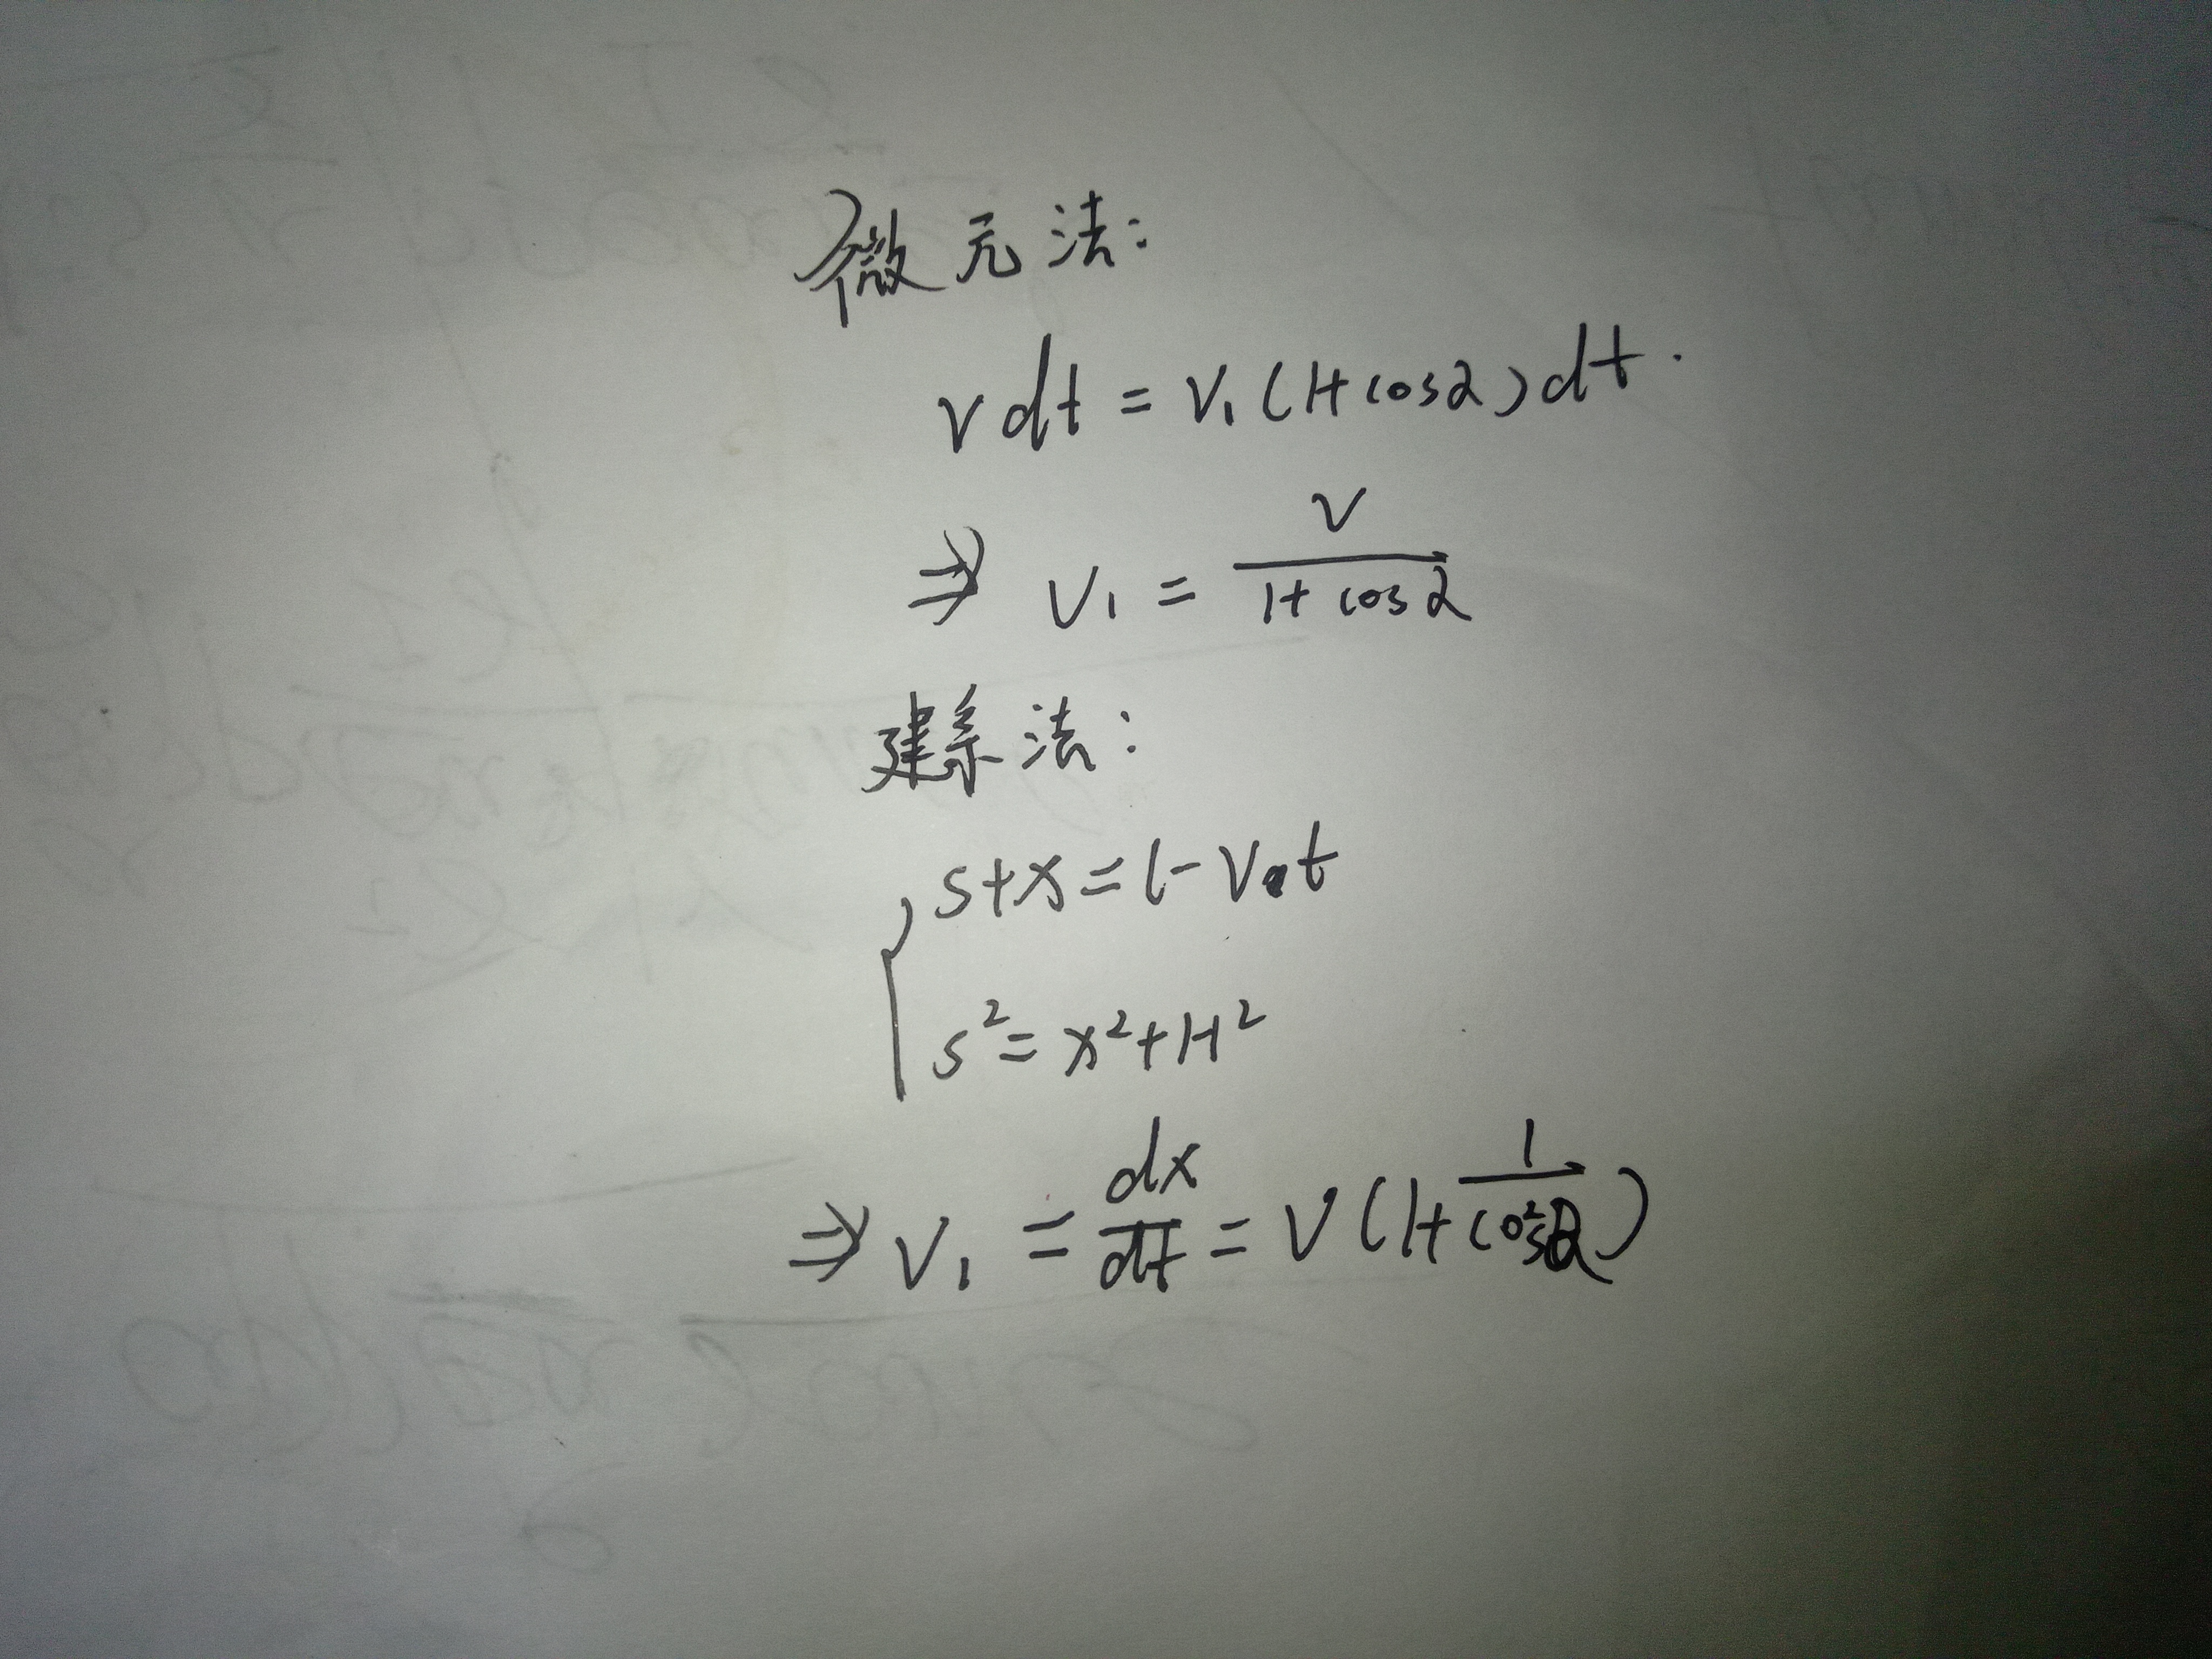 微元法:
vdt = v₁(1+cosα)dt.
⇒ v₁ = v/(1+cosα)
建系法:
s+x=l-v₀t
s²=x²+H²
⇒ v₁ = dx/dt = v(1+1/cos²α)